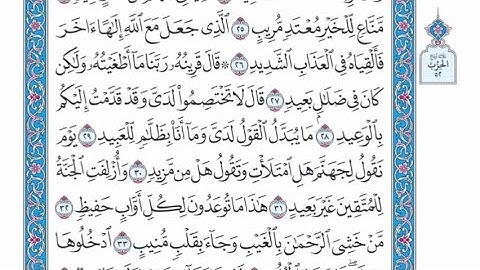 مَّنَّاعٍ لِّلْخَيْرِ مُعْتَدٍ مُّرِيبٍ ٢٥ ٱلَّذِى جَعَلَ مَعَ ٱللَّهِ إِلَٰهًا ءَاخَرَ
فَأَلْقِيَاهُ فِى ٱلْعَذَابِ ٱلشَّدِيدِ ٢٦ ۞ قَالَ قَرِينُهُۥ رَبَّنَا مَآ أَطْغَيْتُهُۥ وَلَٰكِن
كَانَ فِى ضَلَٰلٍۭ بَعِيدٍ ٢٧ قَالَ لَا تَخْتَصِمُوا۟ لَدَىَّ وَقَدْ قَدَّمْتُ إِلَيْكُم
بِٱلْوَعِيدِ ٢٨ مَا يُبَدَّلُ ٱلْقَوْلُ لَدَىَّ وَمَآ أَنَا۠ بِظَلَّٰمٍ لِّلْعَبِيدِ ٢٩ يَوْمَ
نَقُولُ لِجَهَنَّمَ هَلِ ٱمْتَلَأْتِ وَتَقُولُ هَلْ مِن مَّزِيدٍ ٣٠ وَأُزْلِفَتِ ٱلْجَنَّةُ
لِلْمُتَّقِينَ غَيْرَ بَعِيدٍ ٣١ هَٰذَا مَا تُوعَدُونَ لِكُلِّ أَوَّابٍ حَفِيظٍ ٣٢
مَّنْ خَشِىَ ٱلرَّحْمَٰنَ بِٱلْغَيْبِ وَجَآءَ بِقَلْبٍ مُّنِيبٍ ٣٣ ٱدْخُلُوهَا
الحزب
٥٢